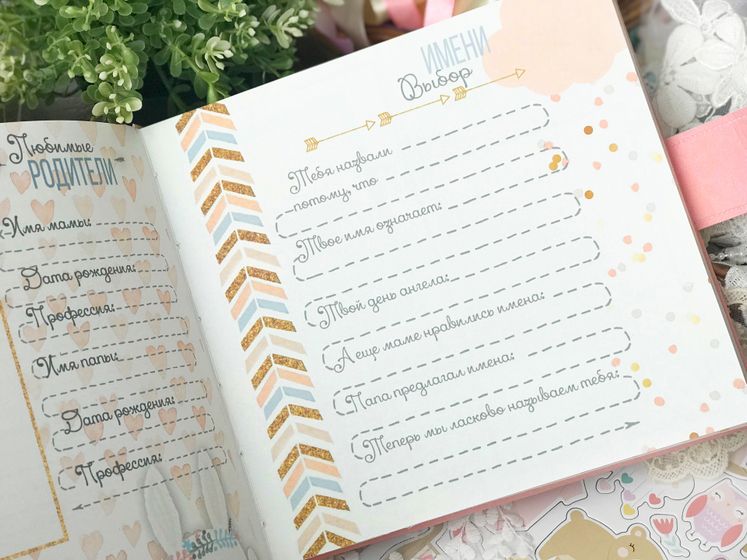 Любимые
РОДИТЕЛИ
Имя мамы:
Дата рождения:
Профессия:
Имя папы:
Дата рождения:
Профессия:
ИМЕНИ
Выбор
Тебя назвали
потому, что
Твое имя означает:
Твой день ангела:
А еще маме нравились имена:
Папа предлагал имена:
Теперь мы ласково называем тебя: